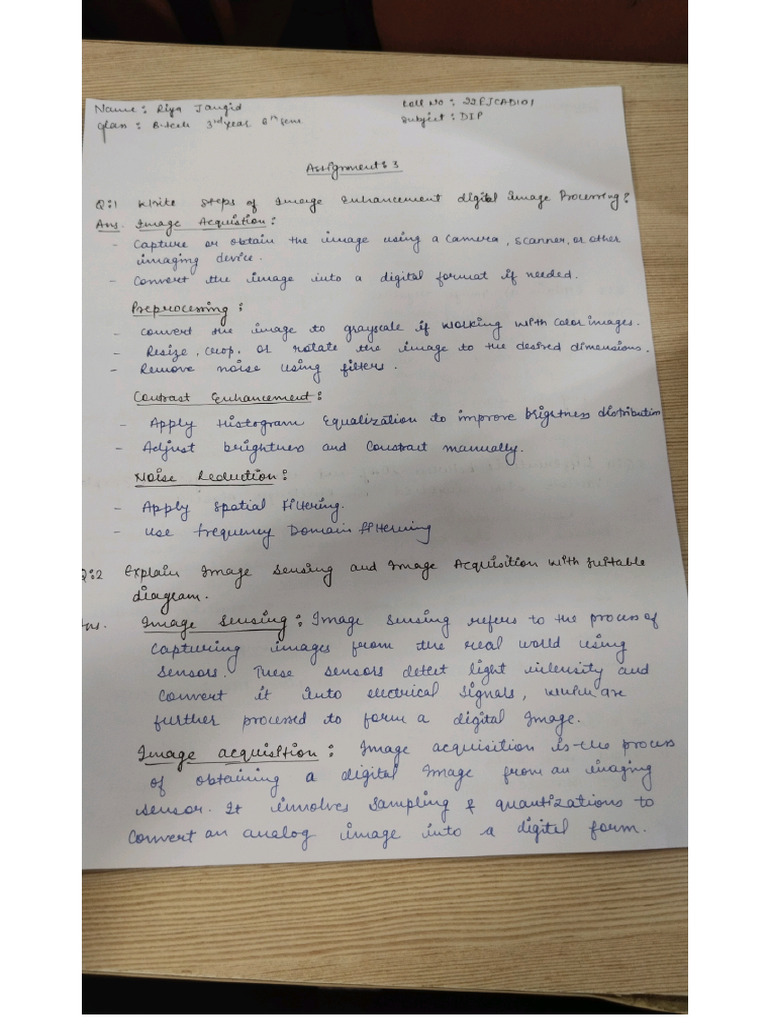 Name: Riya Jangid Roll No: 22EJCAD101
Class: B.tech 3rd year 6th sem Subject: DIP
Assignment: 3
Q:1 Write steps of Image Enhancement digital Image Processing?
Ans. Image Acquistion:
- Capture or obtain the image using a camera, scanner, or other
imaging device.
- Convert the image into a digital format if needed.
Preprocessing:
- convert the image to grayscale if working with color images.
- Resize, crop, or rotate the image to the desired dimensions.
- Remove noise using filters.
Contrast Enhancement:
- Apply Histogram Equalization to improve brightness distribution
- Adjust brightness and Constract manually.
Noise Reduction:
- Apply spatial filtering.
- Use frequency Domain filtering
Q:2 Explain Image Sensing and Image Acquisition with suitable
diagram.
Ans. Image Sensing: Image Sensing refers to the process of
capturing images from the real world using
sensors. These sensors detect light intensity and
convert it into electrical signals, which are
further processed to form a digital Image.
Image acquisition: Image acquisition is the process
of obtaining a digital Image from an imaging
sensor. It involves Sampling & quantizations to
convert an analog image into a digital form.